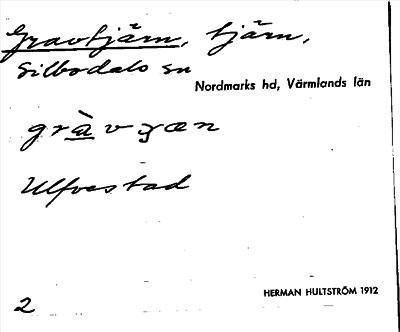 Gravtjärn, tjärn,
Silbodals sn
Nordmarks hd, Värmlands län
gràvʒæn
Ulfvestad
HERMAN HULTSTRÖM 1912
2